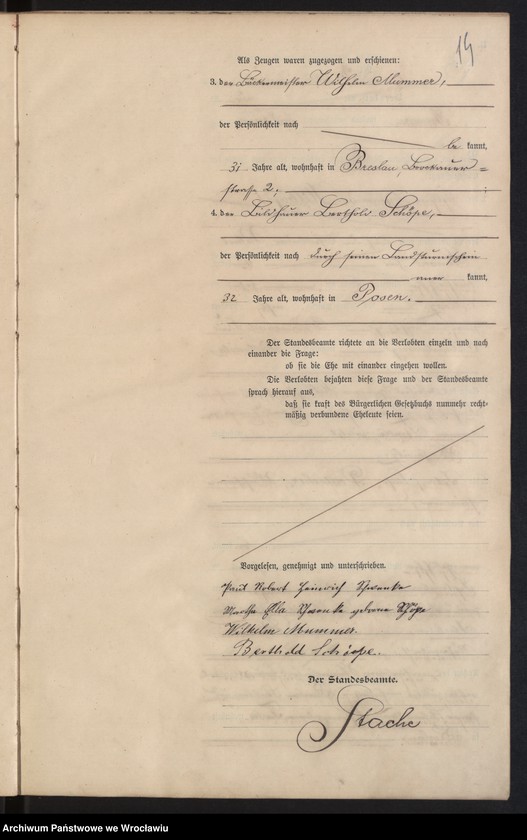 14
Als Zeugen waren zugezogen und erschienen:
3. der Bäckermeister Wilhelm Mummer,
der Persönlichkeit nach
be kannt,
31 Jahre alt, wohnhaft in Breslau, Brockauer-
strasse 2;
4. der Bildhauer Berthold Schöpe,
der Persönlichkeit nach durch seinen Landsturmschein
aner kannt,
32 Jahre alt, wohnhaft in Posen.
Der Standesbeamte richtete an die Verlobten einzeln und nach
einander die Frage:
ob sie die Ehe mit einander eingehen wollen.
Die Verlobten bejahten diese Frage und der Standesbeamte
sprach hierauf aus,
daß sie kraft des Bürgerlichen Gesetzbuchs nunmehr recht-
mäßig verbundene Eheleute seien.
Vorgelesen, genehmigt und unterschrieben.
Paul Robert Heinrich Schwanke
Martha Ella Schwanke geborene Schöpe
Wilhelm Mummer.
Berthold Schöpe.
Der Standesbeamte.
Stache
Archiwum Państwowe we Wrocławiu